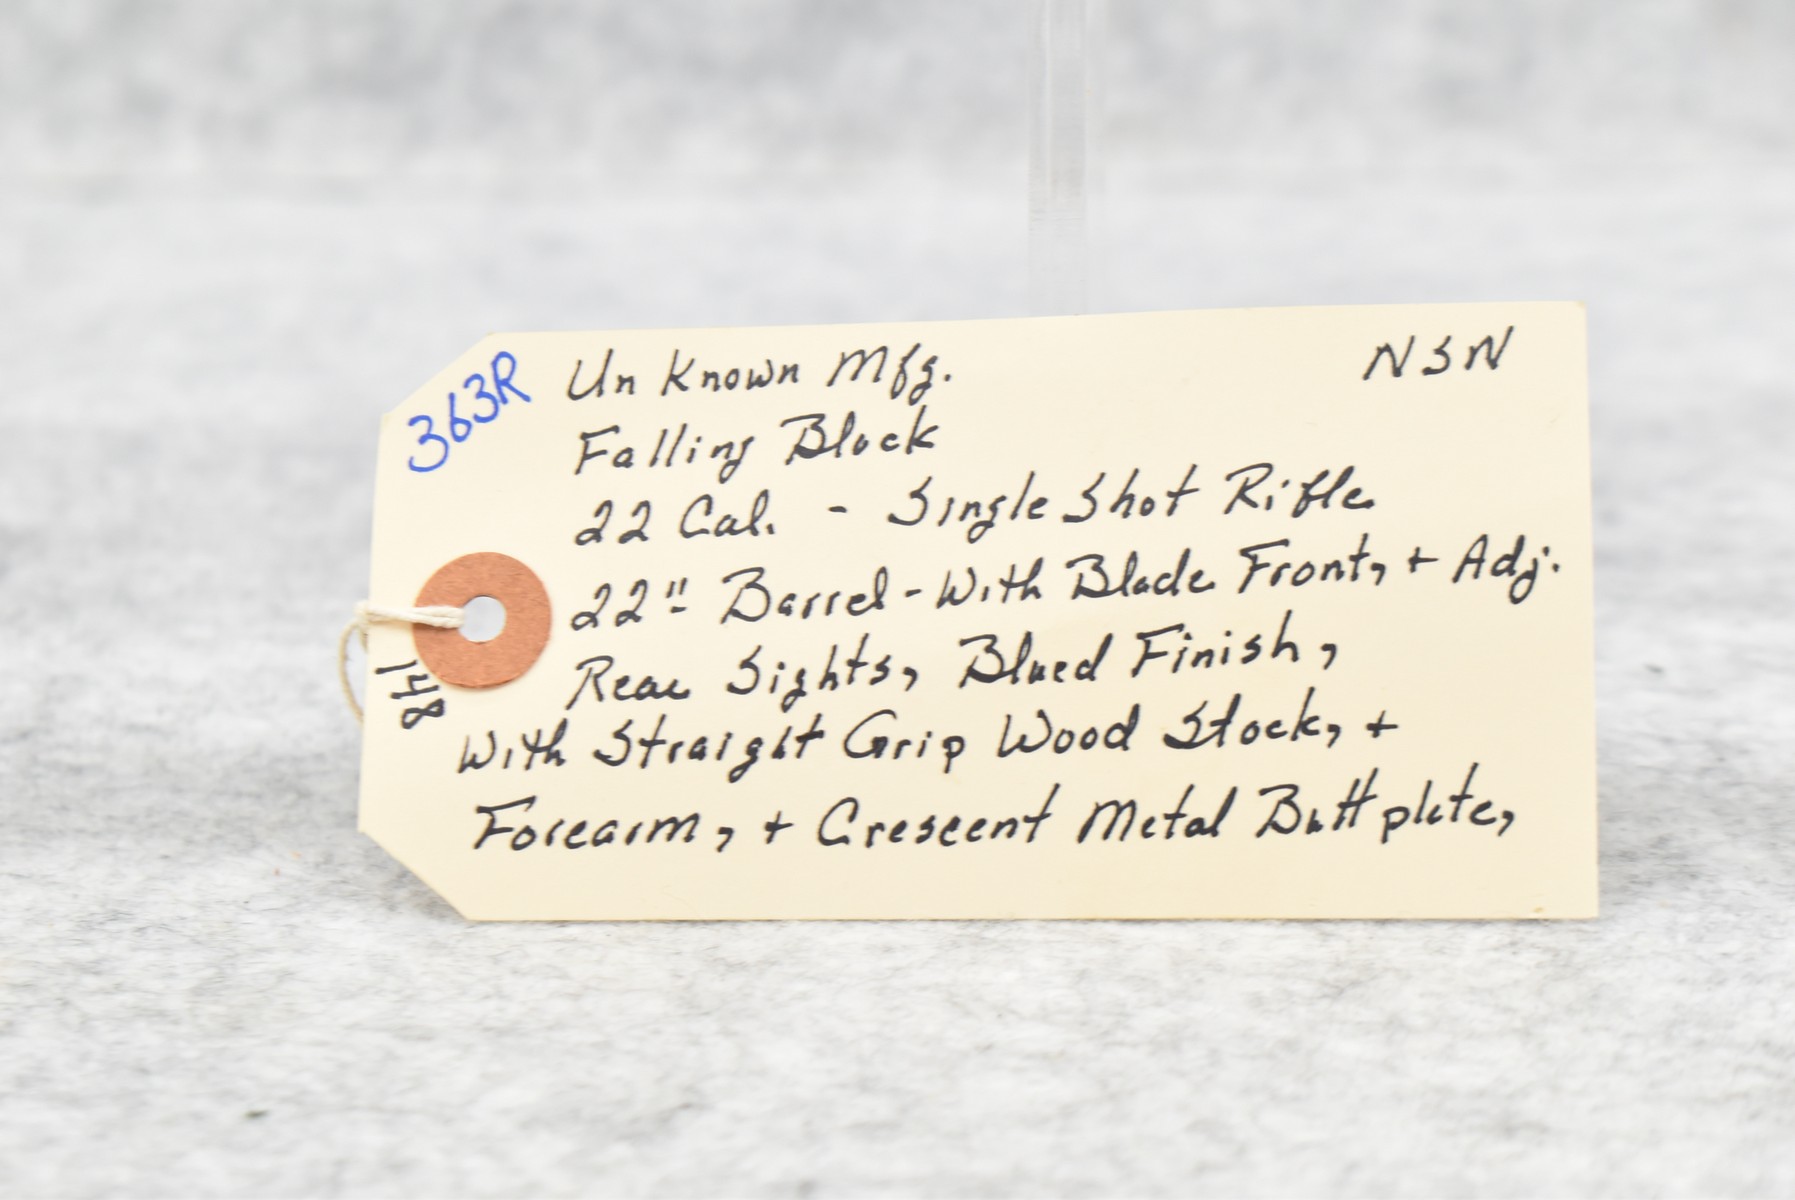 363R
Un Known Mfg. NSN
Falling Block
22 Cal. - Single Shot Rifle
22" Barrel - With Blade Front, + Adj.
Rear Sights, Blued Finish,
With Straight Grip Wood Stock, +
Forearm, + Crescent Metal Buttplate,
148